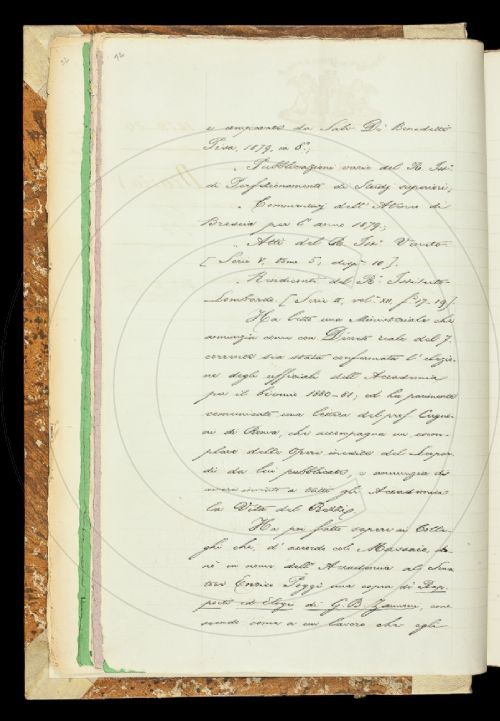 e compendio da Salv. De Benedetti
Pisa, 1879, in 8°;
„ Pubblicazioni varie del R. Isti:
di Perfezionamento di Studj superiori;
„ Commentarj dell'Ateneo di
Brescia per l'anno 1879;
„ Atti del R. Ist. Veneto
[Serie V, tomo 5, disp. 10].
„ Rendiconti del R. Istituto
Lombardo [Serie II, vol. XII, f. 17-19].
Ha letto una Ministeriale che
annunzia come con Decreto reale del 7
corrente sia stata confermata l'elezio-
ne degli uffiziali dell'Accademia
per il biennio 1880-81; ed ha parimente
comunicato una lettera del prof. Cugno-
ni di Roma, che accompagna un esem-
plare delle Opere inedite del Leopar-
di da lui pubblicate, e annunzia di
a tutti gli Accademici
la Vita del
Ha poi fatto sapere ai Colle-
ghi che, d'accordo col Massaio,
in nome dell'Accademia al Sena-
tore Enrico Poggi una copia di Rap-
porti ed Elogi di G. B. Zannoni,
come a un lavoro che egli